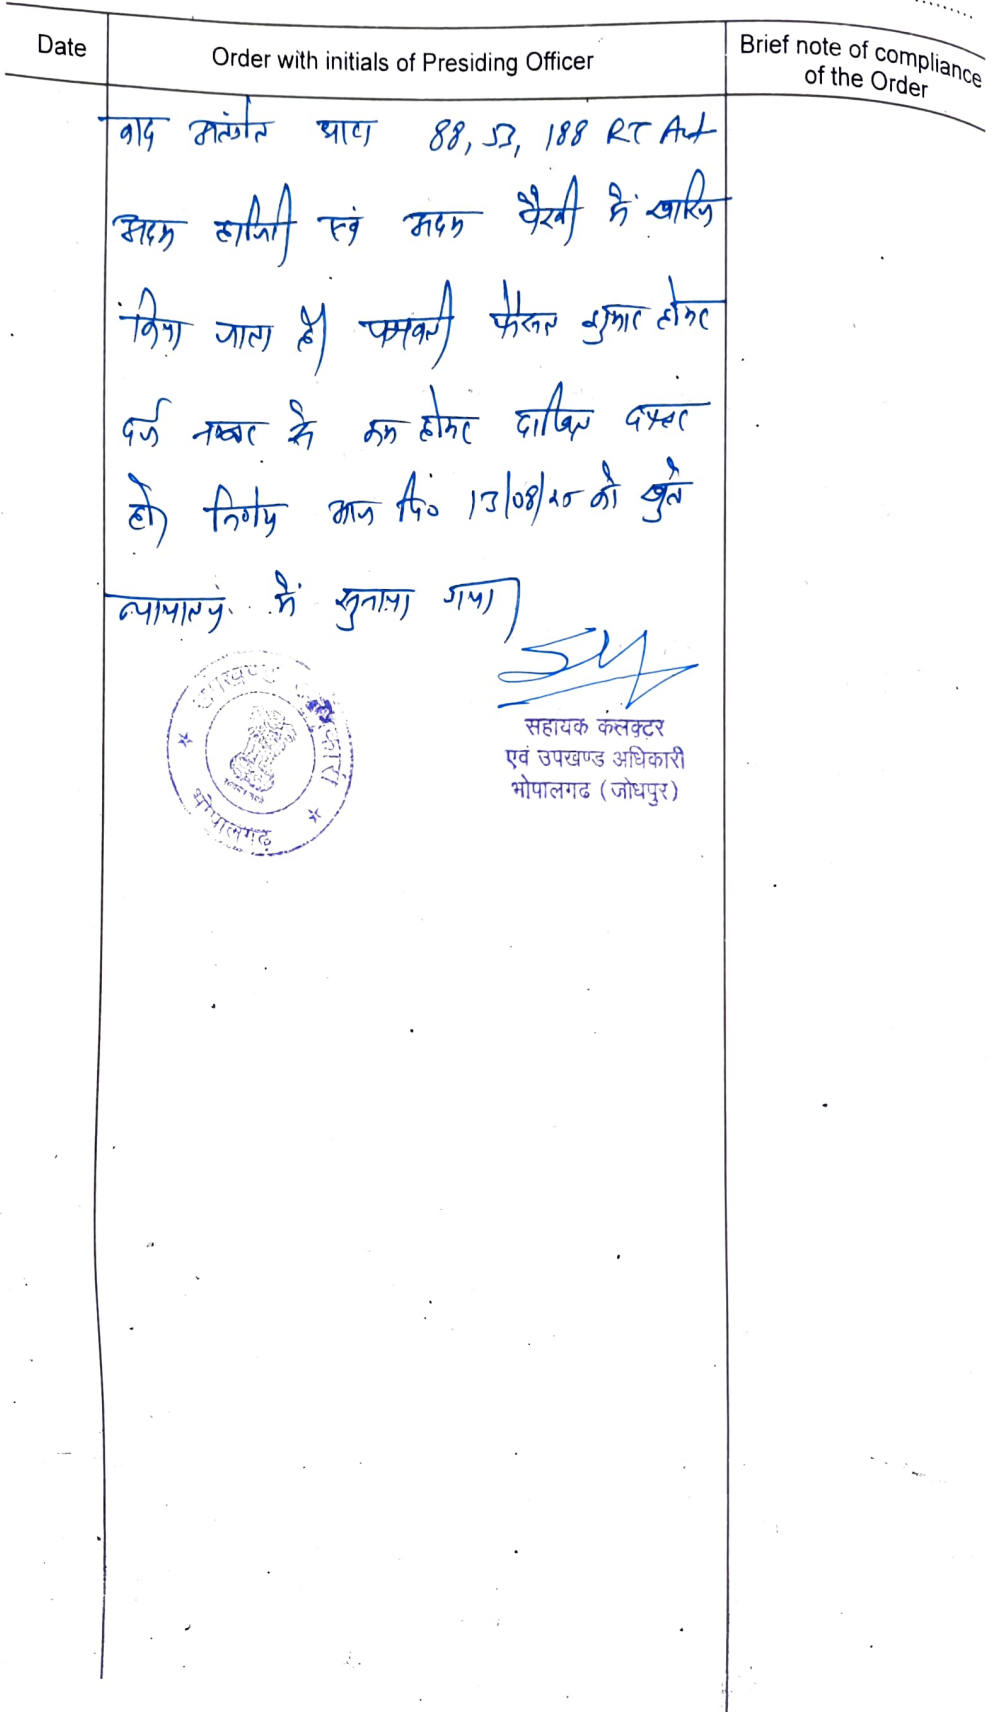 Date
Order with initials of Presiding Officer
Brief note of compliance
of the Order
वाद अन्तर्गत धारा 88, 53, 188 RT Act
अदम हाजिरी एवं अदम पैरवी में खारिज
किया जाता है। पत्रावली फैसल शुमार होकर
दर्ज नम्बर से कम होकर दाखिल दफ्तर
हो। निर्णय आज दि० 13/08/20 को खुले
न्यायालय में सुनाया गया।
सहायक कलक्टर
एवं उपखण्ड अधिकारी
भोपालगढ (जोधपुर)
भोपालगढ़